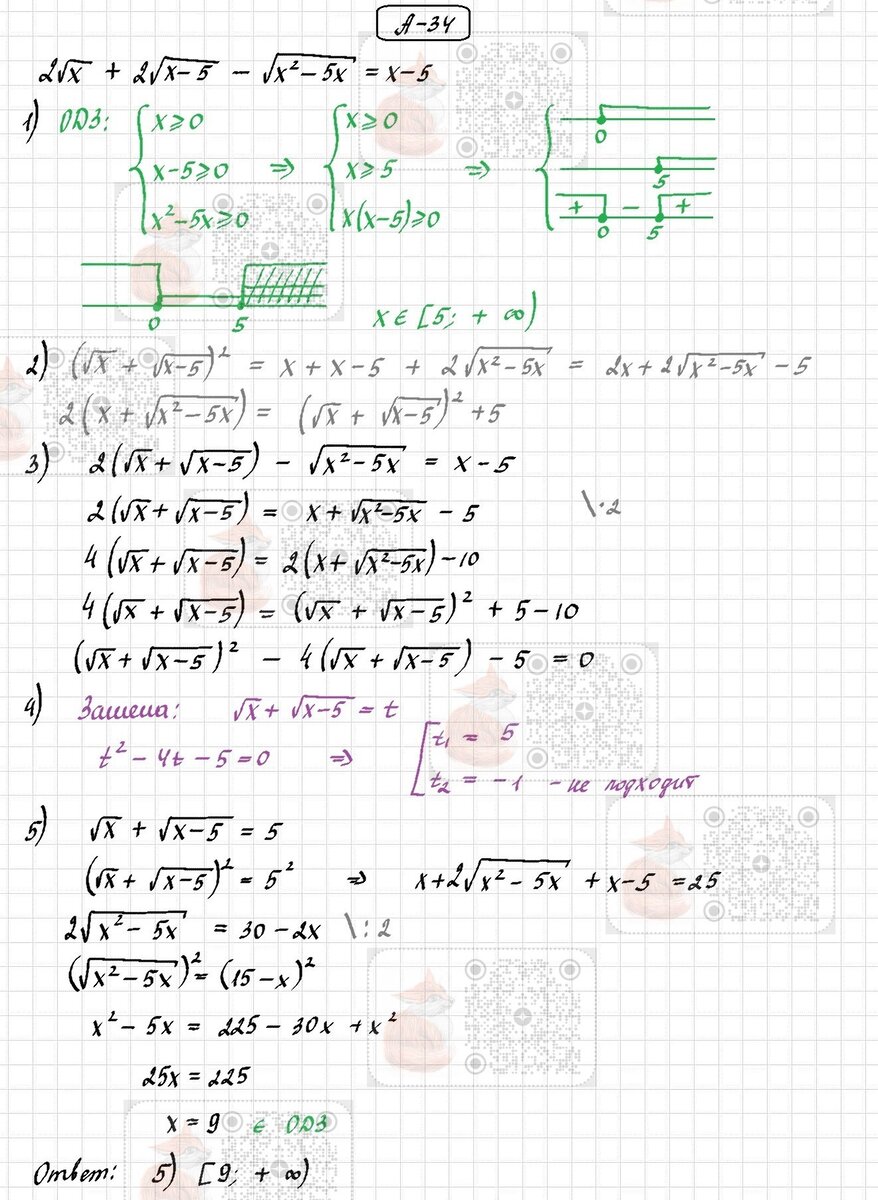 А-34
2√x + 2√(x-5) - √(x²-5x) = x-5
1) ОДЗ: { x⩾0 { x⩾0 0
x-5⩾0 => x⩾5 => 5
x²-5x⩾0 x(x-5)⩾0 + 0 - 5 +
0 5 x ∈ [5; + ∞)
2) (√x + √(x-5))² = x + x - 5 + 2√(x²-5x) = 2x + 2√(x²-5x) - 5
2(x + √(x²-5x)) = (√x + √(x-5))² + 5
3) 2(√x + √(x-5)) - √(x²-5x) = x - 5
2(√x + √(x-5)) = x + √(x²-5x) - 5 \·2
4(√x + √(x-5)) = 2(x + √(x²-5x)) - 10
4(√x + √(x-5)) = (√x + √(x-5))² + 5 - 10
(√x + √(x-5))² - 4(√x + √(x-5)) - 5 = 0
4) Замена: √x + √(x-5) = t
t² - 4t - 5 = 0 => [ t₁ = 5
t₂ = -1 - не подходит
5) √x + √(x-5) = 5
(√x + √(x-5))² = 5² => x + 2√(x²-5x) + x - 5 = 25
2√(x²-5x) = 30 - 2x \: 2
(√(x²-5x))² = (15 - x)²
x² - 5x = 225 - 30x + x²
25x = 225
x = 9 ∈ ОДЗ
Ответ: 5) [9; + ∞)